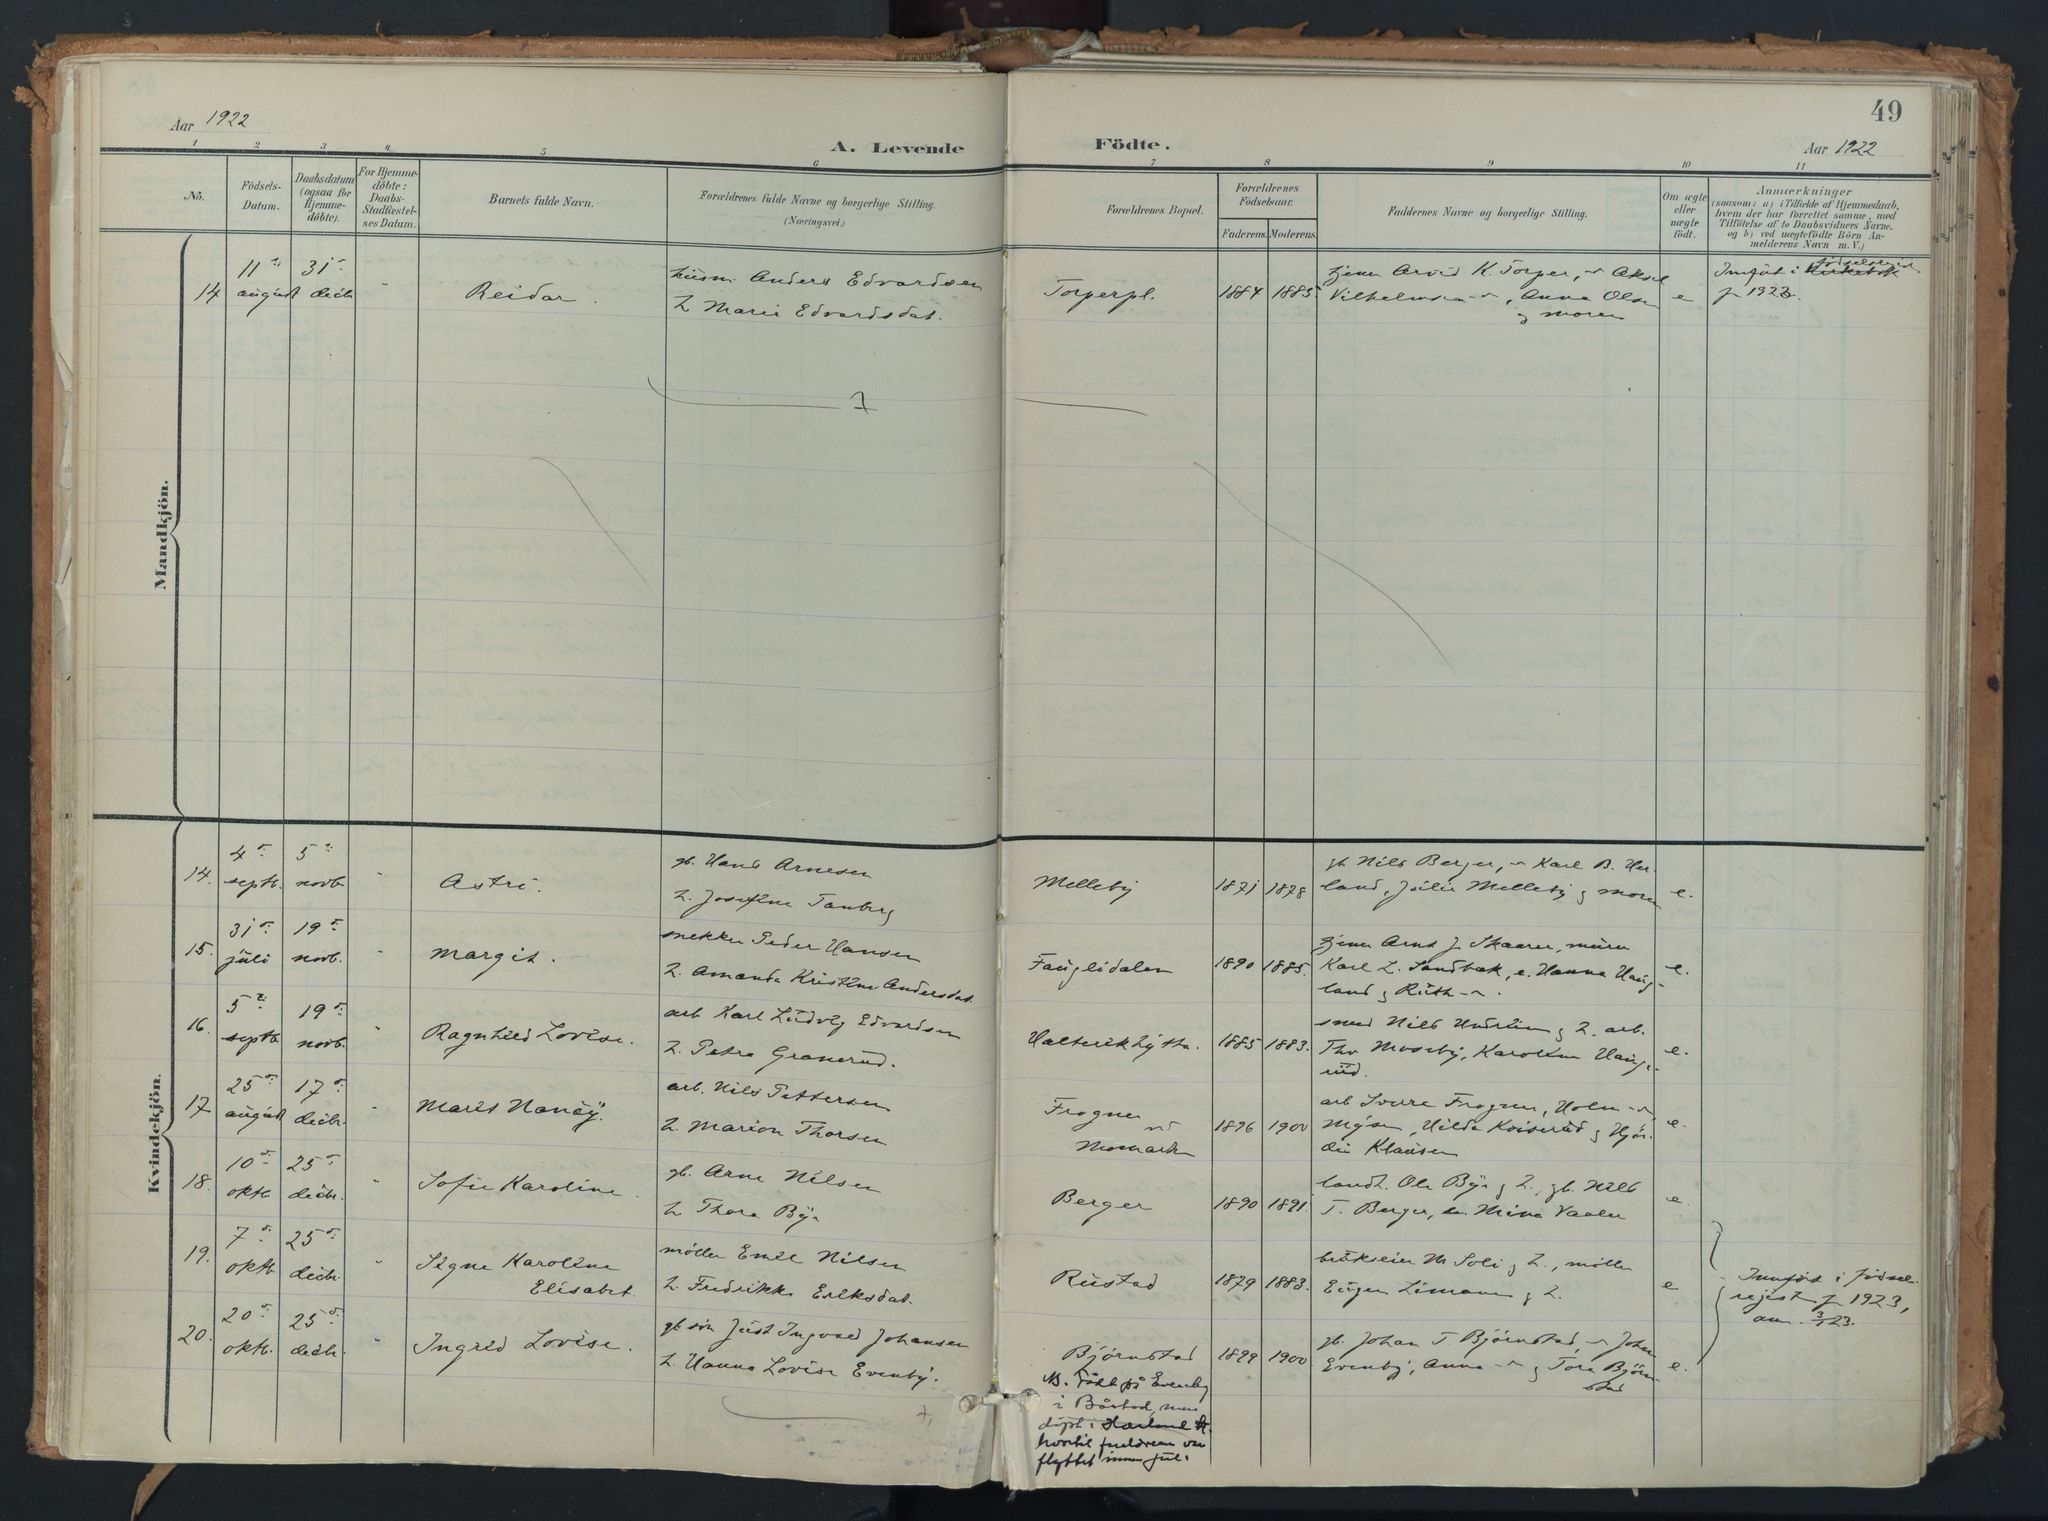 49
Aar 1922
A. Levende Födte.
Aar 1922
1 2 3 4 5 6 7 8 9 10 11
No.
Födsels-
Datum.
Daabsdatum
(ogsaa for
Hjemme-
döbte).
For Hjemme-
döbte:
Daabs-
Stadfestel-
ses Datum.
Barnets fulde Navn.
Forældrenes fulde Navne og borgerlige Stilling.
(Næringsvei.)
Forældrenes Bopæl.
Forældrenes
Födselsaar.
Faderens. Moderens.
Faddernes Navne og borgerlige Stilling.
Om ægte
eller
uægte
født.
Anmærkninger
(saasom: a) i Tilfælde af Hjemmedaab,
hvem der har forrettet samme, med
Tilföielse af to Daabsvidners Navne.
og b) ved uægtefödte Börn An-
melderens Navn m. V.)
Mandkjön.
14
11
august
31
decbr
"
Reidar.
husm. Anders Edvardsen
H. Marie Edvardsdat.
Torperpl.
1884 1885
Arvid K. Torper, Aksel
Vilhelmsen, Anna Olsen
og moren
e
Innført i Kirkebok
f. 1923.
Kvindekjön.
14.
4
septb.
5
novb.
"
Astri.
gb. Hans Arnesen
H. Josefine Tanberg
Melleby
1871 1878
gb Nils Berger, Karl B. Hær-
land, Julie Melleby og moren
e.
15.
31
juli
19
novb.
"
Margit.
snekker Peder Hansen
H. Amanda Kristine Andersdat.
Fauglidalen
1890 1885.
Arne J. Skaarer, murer
Karl L. Sandbæk, e. Hanna Haug-
land og Ruth
e.
16.
5
septb.
19
novb.
"
Ragnhild Lovise.
arb Karl Ludvig Edvardsen
H. Petra Granerud.
1885 1883.
smed Nils og H. arb.
Thv. Moseby, Karoline Haug-
rud.
e.
17
25
august
17
decbr.
"
Maris Nancy.
arb. Nils Pettersen
H. Marion Thorsen
Frogner
Momarken
1896 1900
arb Sverre Frogner, Holm
Mysen, Hilda Koiserud og Hjør-
dis Klausen
e.
18.
10
oktb.
25
decbr.
"
Sofie Karoline.
gb. Arne Nilsen
H. Thora Bye
Berger
1890 1891.
landh. Ole Bye og H., gb. Nils
T. Berger, Mina Vaaler
e.
19.
7
oktb.
25
decbr.
"
Signe Karoline
Elisabet.
møller Emil Nilsen
H. Fredrikke Eriksdat.
Rustad
1879 1883.
brukseier M. Soli og H., møller
Eugen Limann og H.
e
Innført i fødsel.
regist f. 1923,
anm. 3/1 23.
20.
20
oktb.
25
decbr.
"
Ingrid Lovise.
gb søn Just Ingvald Johansen
H. Hanna Lovise Evenby.
Bjørnstad
1899 1900
gb. Johan T. Bjørnstad, Johan
Evenby, Anna og Tora Bjørn-
stad
e.
NB. Født på Evenby
i Båstad, men
døpt i Hærland k.
hvortil foreldrene var
flyttet innen jul.